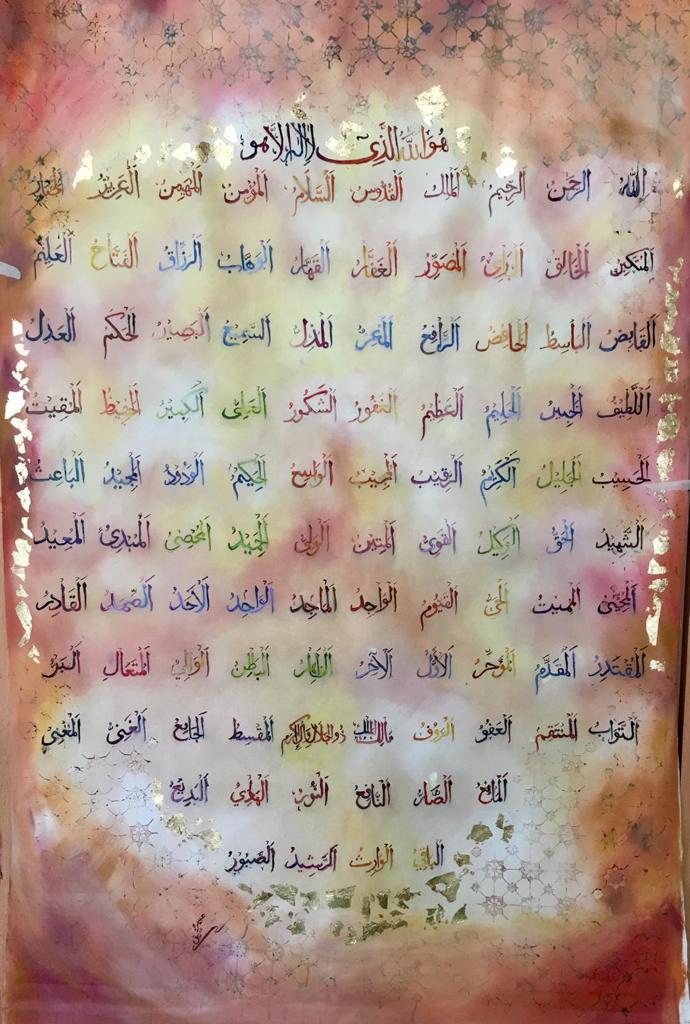 هُوَ اللهُ الَّذِي لَا إِلٰهَ إِلَّا هُوَ
اَللهُ اَلرَّحْمٰنُ اَلرَّحِيْمُ اَلْمَلِكُ اَلْقُدُّوْسُ اَلسَّلَامُ اَلْمُؤْمِنُ اَلْمُهَيْمِنُ اَلْعَزِيْزُ اَلْجَبَّارُ
اَلْمُتَكَبِّرُ اَلْخَالِقُ اَلْبَارِئُ اَلْمُصَوِّرُ اَلْغَفَّارُ اَلْقَهَّارُ اَلْوَهَّابُ اَلرَّزَّاقُ اَلْفَتَّاحُ اَلْعَلِيْمُ
اَلْقَابِضُ اَلْبَاسِطُ اَلْخَافِضُ اَلرَّافِعُ اَلْمُعِزُّ اَلْمُذِلُّ اَلسَّمِيْعُ اَلْبَصِيْرُ اَلْحَكَمُ اَلْعَدْلُ
اَللَّطِيْفُ اَلْخَبِيْرُ اَلْحَلِيْمُ اَلْعَظِيْمُ اَلْغَفُوْرُ اَلشَّكُوْرُ اَلْعَلِىُّ اَلْكَبِيْرُ اَلْحَفِيْظُ اَلْمُقِيْتُ
اَلْحَسِيْبُ اَلْجَلِيْلُ اَلْكَرِيْمُ اَلرَّقِيْبُ اَلْمُجِيْبُ اَلْوَاسِعُ اَلْحَكِيْمُ اَلْوَدُوْدُ اَلْمَجِيْدُ اَلْبَاعِثُ
اَلشَّهِيْدُ اَلْحَقُّ اَلْوَكِيْلُ اَلْقَوِىُّ اَلْمَتِيْنُ اَلْوَلِىُّ اَلْحَمِيْدُ اَلْمُحْصِىُ اَلْمُبْدِئُ اَلْمُعِيْدُ
اَلْمُحْيِىُ اَلْمُمِيْتُ اَلْحَىُّ اَلْقَيُّوْمُ اَلْوَاجِدُ اَلْمَاجِدُ اَلْوَاحِدُ اَلْأَحَدُ اَلصَّمَدُ اَلْقَادِرُ
اَلْمُقْتَدِرُ اَلْمُقَدِّمُ اَلْمُؤَخِّرُ اَلْأَوَّلُ اَلْآخِرُ اَلظَّاهِرُ اَلْبَاطِنُ اَلْوَالِي اَلْمُتَعَالِ اَلْبَرُّ
اَلتَّوَّابُ اَلْمُنْتَقِمُ اَلْعَفُوُّ اَلرَّؤُوْفُ مَالِكُ الْمُلْكِ ذُو الْجَلَالِ وَالْإِكْرَامِ اَلْمُقْسِطُ اَلْجَامِعُ اَلْغَنِىُّ اَلْمُغْنِي
اَلْمَانِعُ اَلضَّارُّ اَلنَّافِعُ اَلنُّوْرُ اَلْهَادِي اَلْبَدِيْعُ
اَلْبَاقِي اَلْوَارِثُ اَلرَّشِيْدُ اَلصَّبُوْرُ